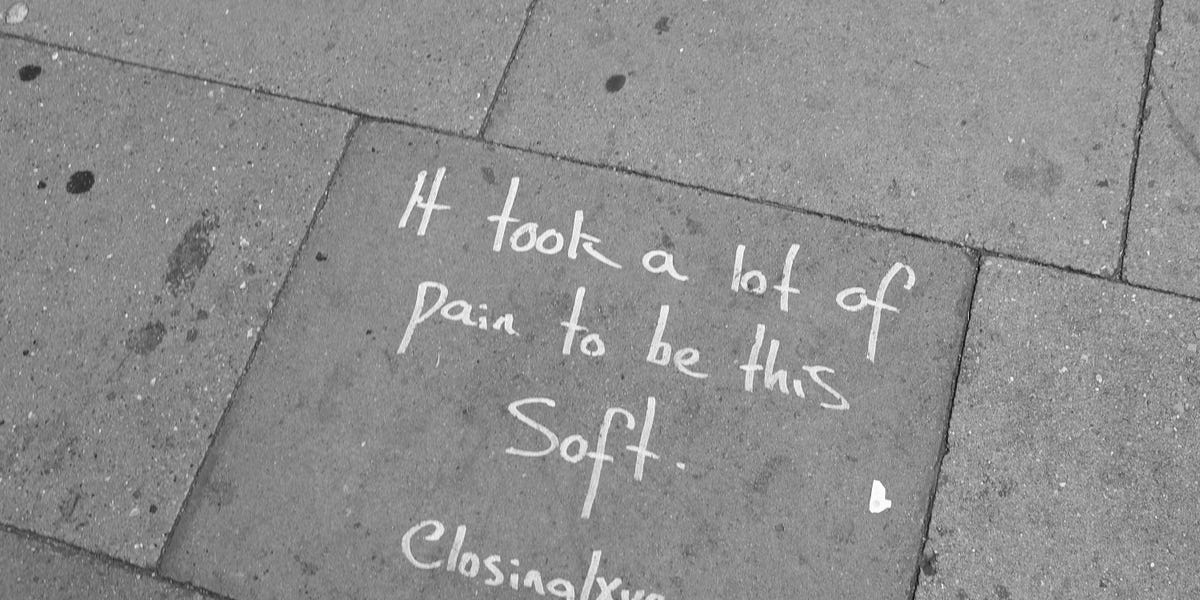 It took a lot of
pain to be this
Soft.